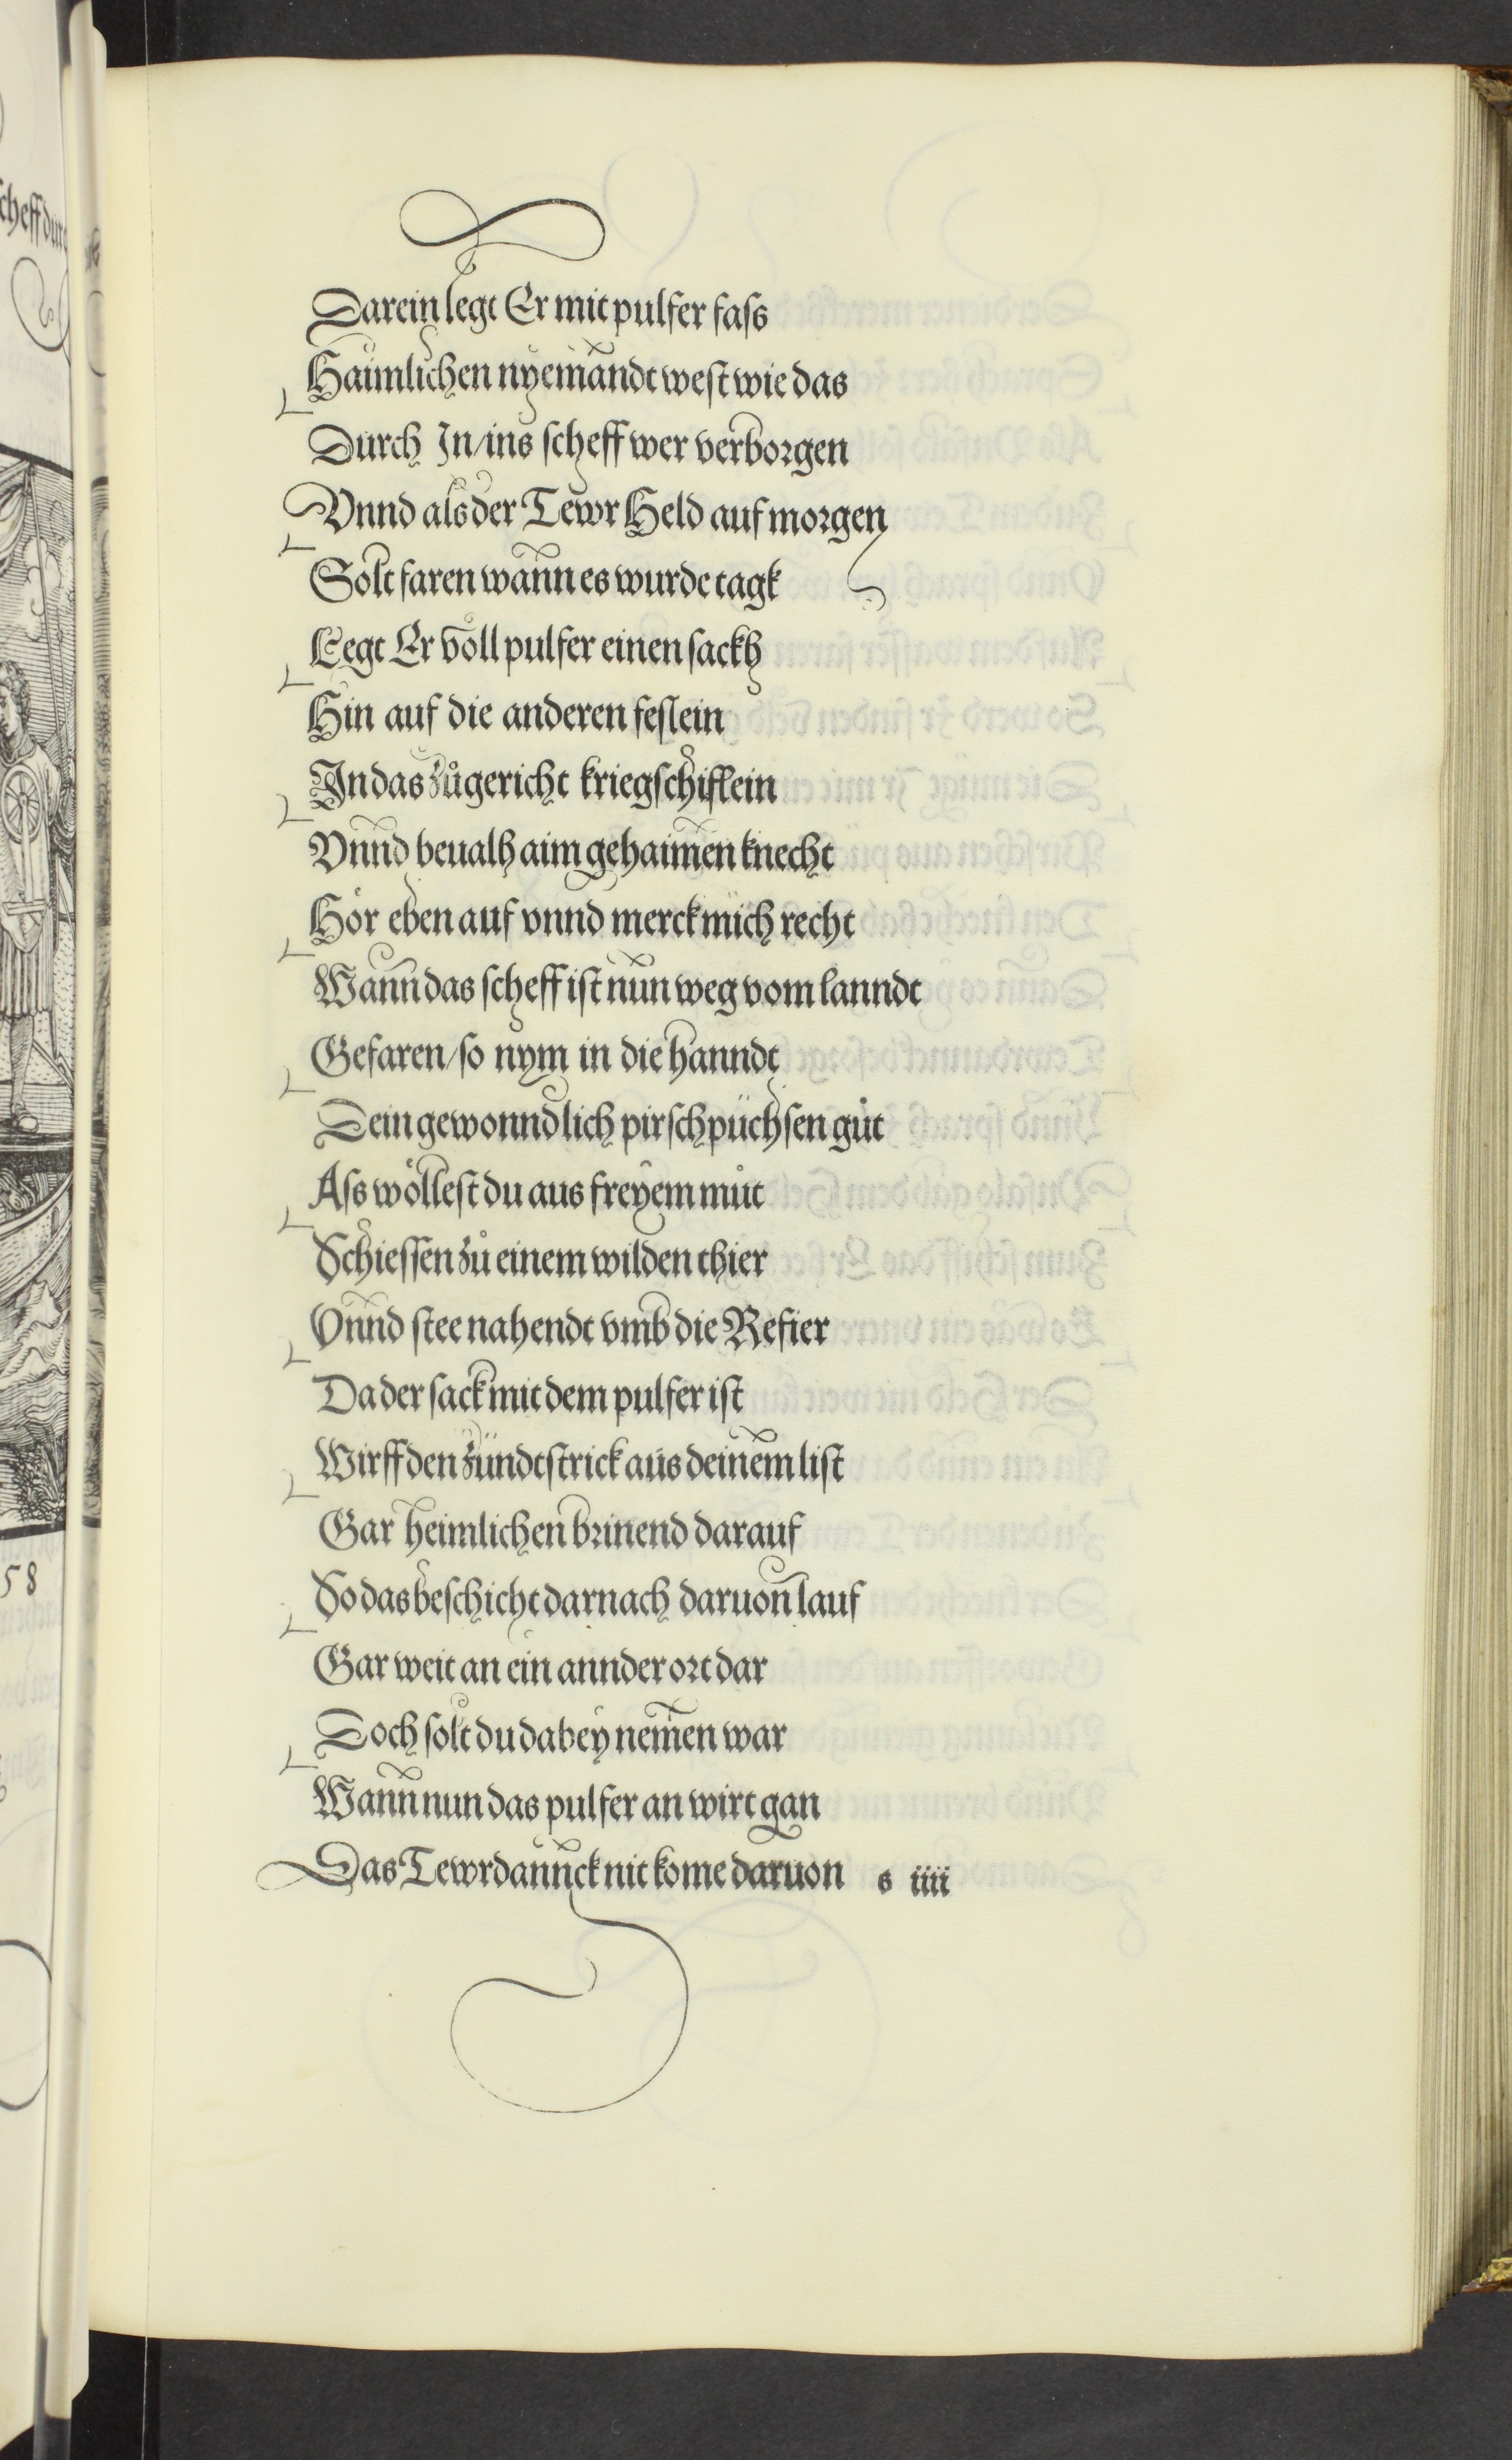 Darein legt Er mit pulfer faſs
Haimlichen nyemandt weſt wie das
Durch In/ins ſcheff wer verborgen
Vnnd als der Tewr Held auf morgen
Solt faren wann es wurde tagk
Legt Er voll pulfer einen ſackh
Hin auf die anderen feſlein
In das zůgericht kriegſchiflein
Vnnd beualh aim gehaimen knecht
Hör eben auf vnnd merck mich recht
Wann das ſcheff iſt nun weg vom lanndt
Gefaren/ſo nym in die hanndt
Dein gewonndlich pirſchpüchſen gůt
Aſs wölleſt du aus freyem můt
Schieſſen zů einem wilden thier
Vnnd ſtee nahendt vmb die Refier
Da der ſack mit dem pulfer iſt
Wirff den zündtſtrick aus deinem liſt
Gar heimlichen brinend darauf
So das beſchicht darnach daruon lauf
Gar weit an ein annder ort dar
Doch ſolt du dabey nemen war
Wann nun das pulfer an wirt gan
Das Tewrdannck nit kome daruon s iiii
cheff dur
58